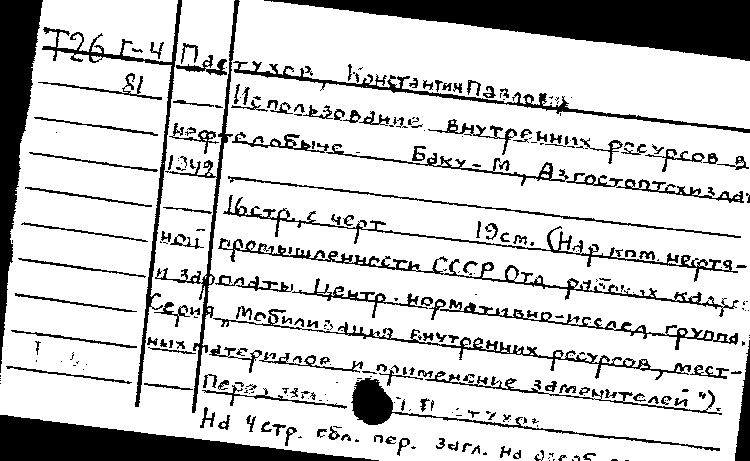 Т26 Г-4 Пастухов, Константин Павлович
81 Использование внутренних ресурсов в
нефтедобыче. Баку-М., Азгостоптехиздат
1942.
16 стр., с черт. 19 см. (Нар. ком. нефтя-
ной промышленности СССР Отд. рабочих кадров
и зарплаты. Центр. нормативно-исслед. группа.
Серия „Мобилизация внутренних ресурсов, мест-
ных материалов и применение заменителей").
Перед загл.
На 4 стр. обл. пер. загл. на